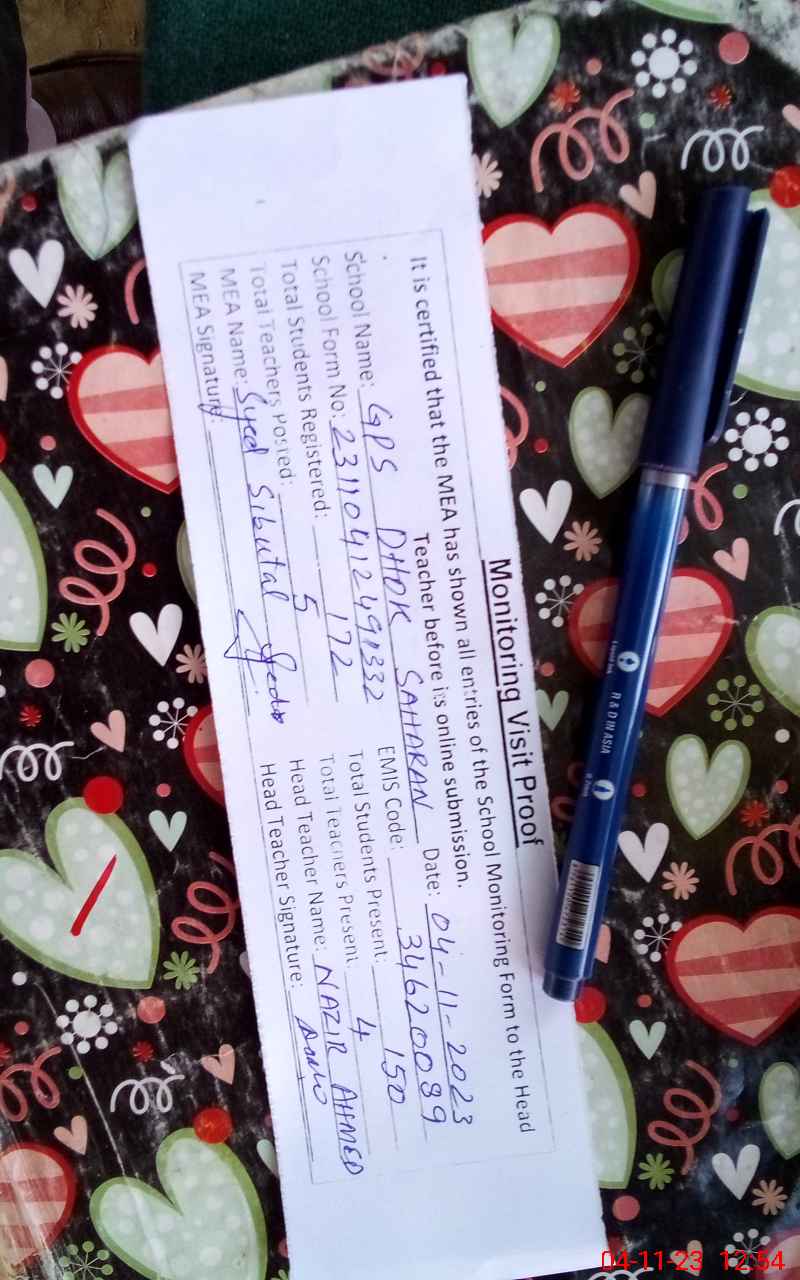 Monitoring Visit Proof
It is certified that the MEA has shown all entries of the School Monitoring Form to the Head
Teacher before its online submission.
School Name: GPS DHOK SAHARAN Date: 04-11-2023
School Form No: EMIS Code: 34620089
Total Students Registered: 172 Total Students Present: 150
Total Teachers Posted: 5 Total Teachers Present: 4
MEA Name: Syed Head Teacher Name: NAZIR AHMED
MEA Signature: Head Teacher Signature:
R & D IN ASIA
04-11-23 12:54